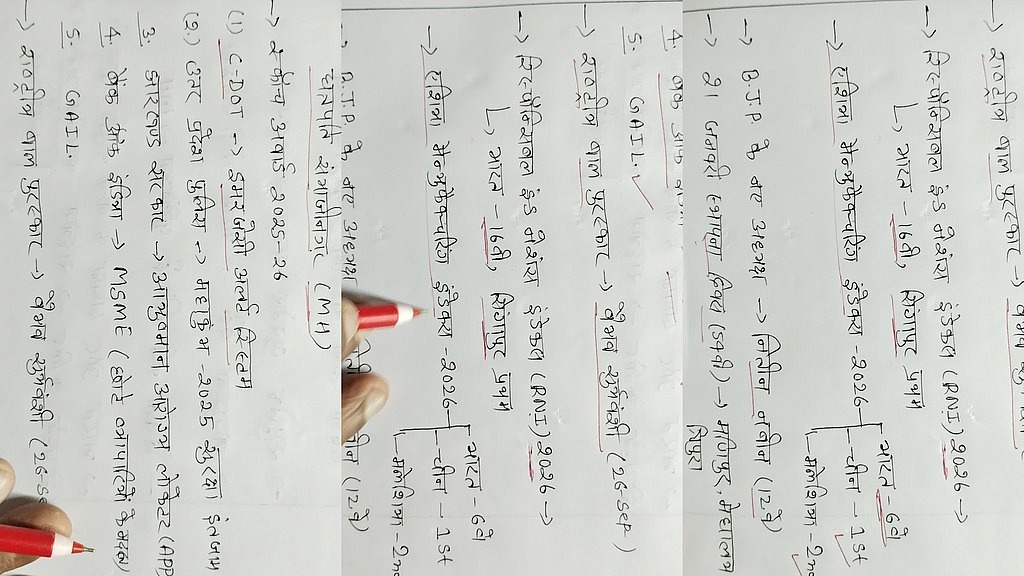 संभाजीनगर (MH)
→ स्कोच अवार्ड 2025-26
(1) C-DOT → इमरजेंसी अलर्ट सिस्टम
(2.) उत्तर प्रदेश पुलिस → महाकुंभ -2025 सुरक्षा इंतजाम
3. झारखण्ड सरकार → आयुष्मान आरोग्य लोकेटर (APP
4. बैंक ऑफ इंडिया → MSME (छोटे व्यापारियों के
5. GAIL.
→ राष्ट्रीय बाल पुरस्कार → वैभव सूर्यवंशी (26-Se
4. बैंक ऑफ
5. GAIL.
→ राष्ट्रीय बाल पुरस्कार → वैभव सूर्यवंशी (26-Sep)
→ रिस्पॉन्सिबल इंड नेशंस इंडेक्स (RNI) 2026 →
↳ भारत - 16वीं, सिंगापुर प्रथम
→ एशिया मैन्युफैक्चरिंग इंडेक्स -2026
भारत - 6वें
चीन - 1st
मलेशिया - 2nd
B.J.P. के नए अध्यक्ष (12वें)
→ राष्ट्रीय बाल पुरस्कार → वैभव
→ रिस्पॉन्सिबल इंड नेशंस इंडेक्स (RNI) 2026 →
↳ भारत - 16वीं, सिंगापुर प्रथम
→ एशिया मैन्युफैक्चरिंग इंडेक्स -2026
भारत - 6वें
चीन - 1st
मलेशिया - 2nd
→ B.J.P. के नए अध्यक्ष → नितिन नवीन (12वें)
→ 21 जनवरी स्थापना दिवस (54वां) → मणिपुर, मेघालय
त्रिपुरा